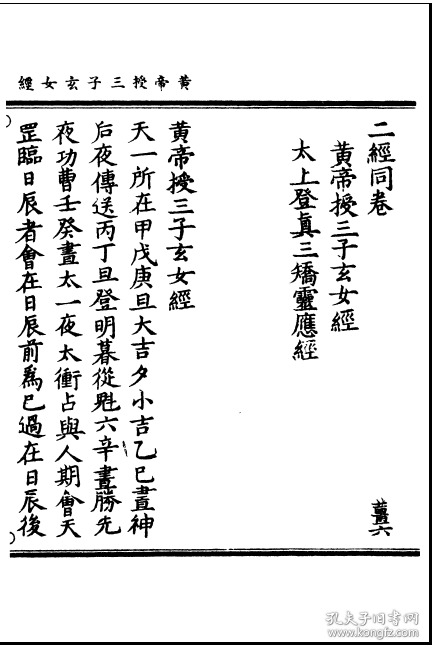 黃帝授三子玄女經
二經同卷
黃帝授三子玄女經
太上登眞三矯靈應經
薑六
黃帝授三子玄女經
天一所在甲戊庚旦大吉夕小吉乙己晝神
后夜傳送丙丁旦登明暮從魁六辛晝勝先
夜功曹壬癸晝太一夜太衝占與人期會天
罡臨日辰者會在日辰前爲已過在日辰後
孔夫子旧书网
www.kongfz.com